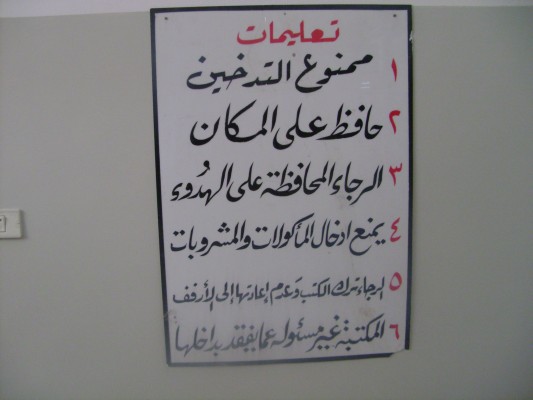 تعليمات
١ ممنوع التدخين
٢ حافظ على المكان
٣ الرجاء المحافظة على الهدُوء
٤ يمنع ادخال المأكولات والمشروبات
٥ الرجاء ترك الكتب وَعدم إعادتها إلى الأرفف
٦ المكتبة غير مسئوله عما يفقد بداخلها